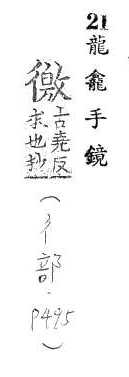 21 龍龕手鏡
徼
古堯反
求也抄
(彳部·P495)